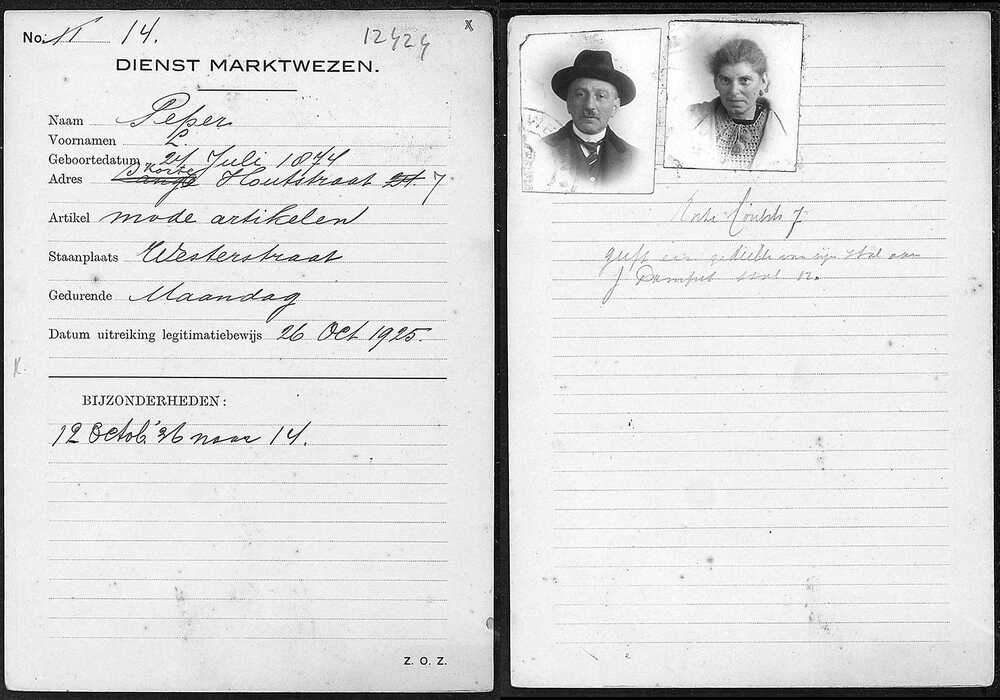 No. 11 14. 12424 X
DIENST MARKTWEZEN.
Naam Peper
Voornamen L.
Geboortedatum 24 Juli 1874
Korte
Adres Lange Houtstraat 21. 7
Artikel mode artikelen
Staanplaats Westerstraat
Gedurende Maandag
Datum uitreiking legitimatiebewijs 26 Oct 1925.
K.
BIJZONDERHEDEN:
12 Octob '36 naar 14.
Z. O. Z.
Korte Houtstr 7
geeft een gedeelte van zijn stal aan
J stal 12.